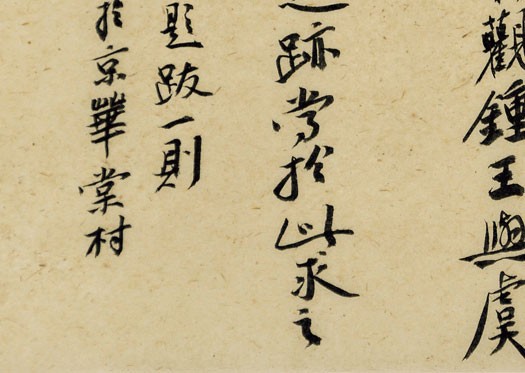 觀鍾王與虞
跡當於此求之
題跋一則
於京華棠村